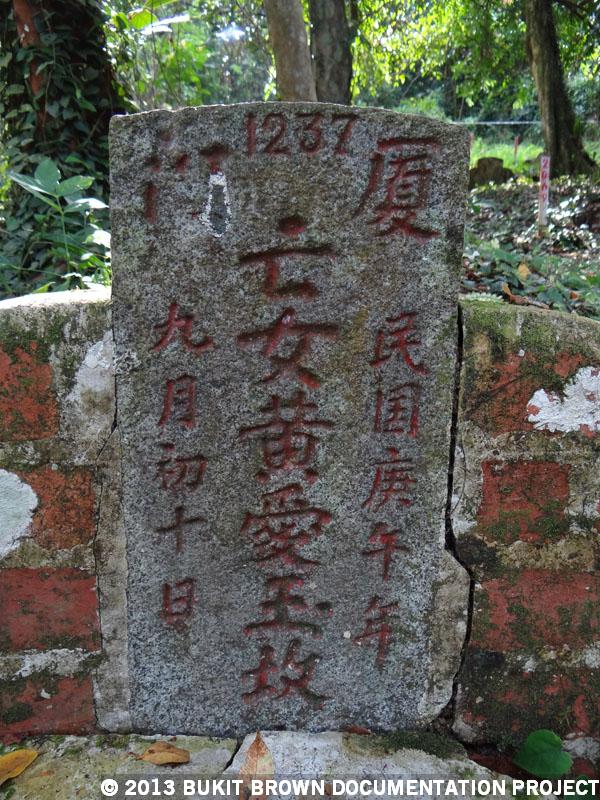 1237
厦
民国庚午年
亡女黄愛玉坟
九月初十日
© 2013 BUKIT BROWN DOCUMENTATION PROJECT